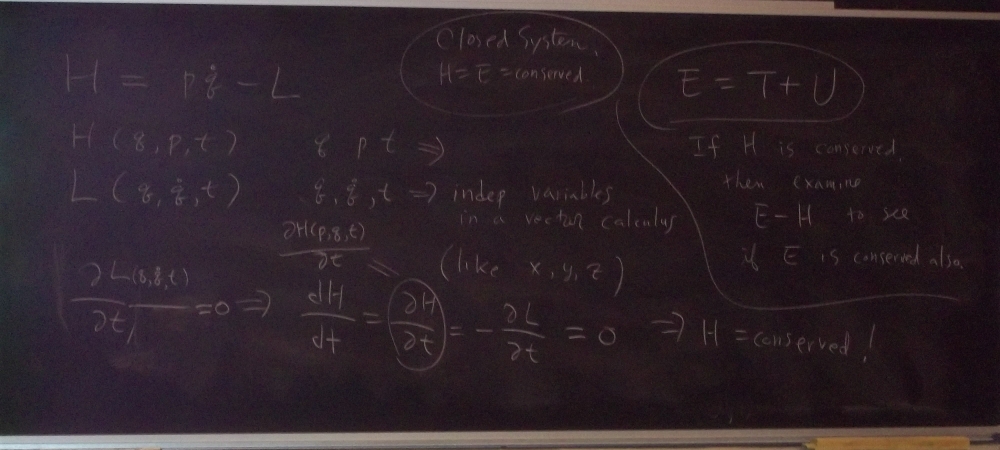 Closed System.
H = E = conserved.
H = pq̇ - L
E = T + U
H (q, p, t)
q p t ⇒
L (q, q̇, t)
q, q̇, t ⇒ indep variables
in a vector calculus
(like x, y, z)
If H is conserved,
then examine
E-H to see
if E is conserved also.
∂H(p,q,t)/∂t
∂L(q,q̇,t)/∂t = 0 ⇒ dH/dt = ∂H/∂t = - ∂L/∂t = 0 ⇒ H = conserved!